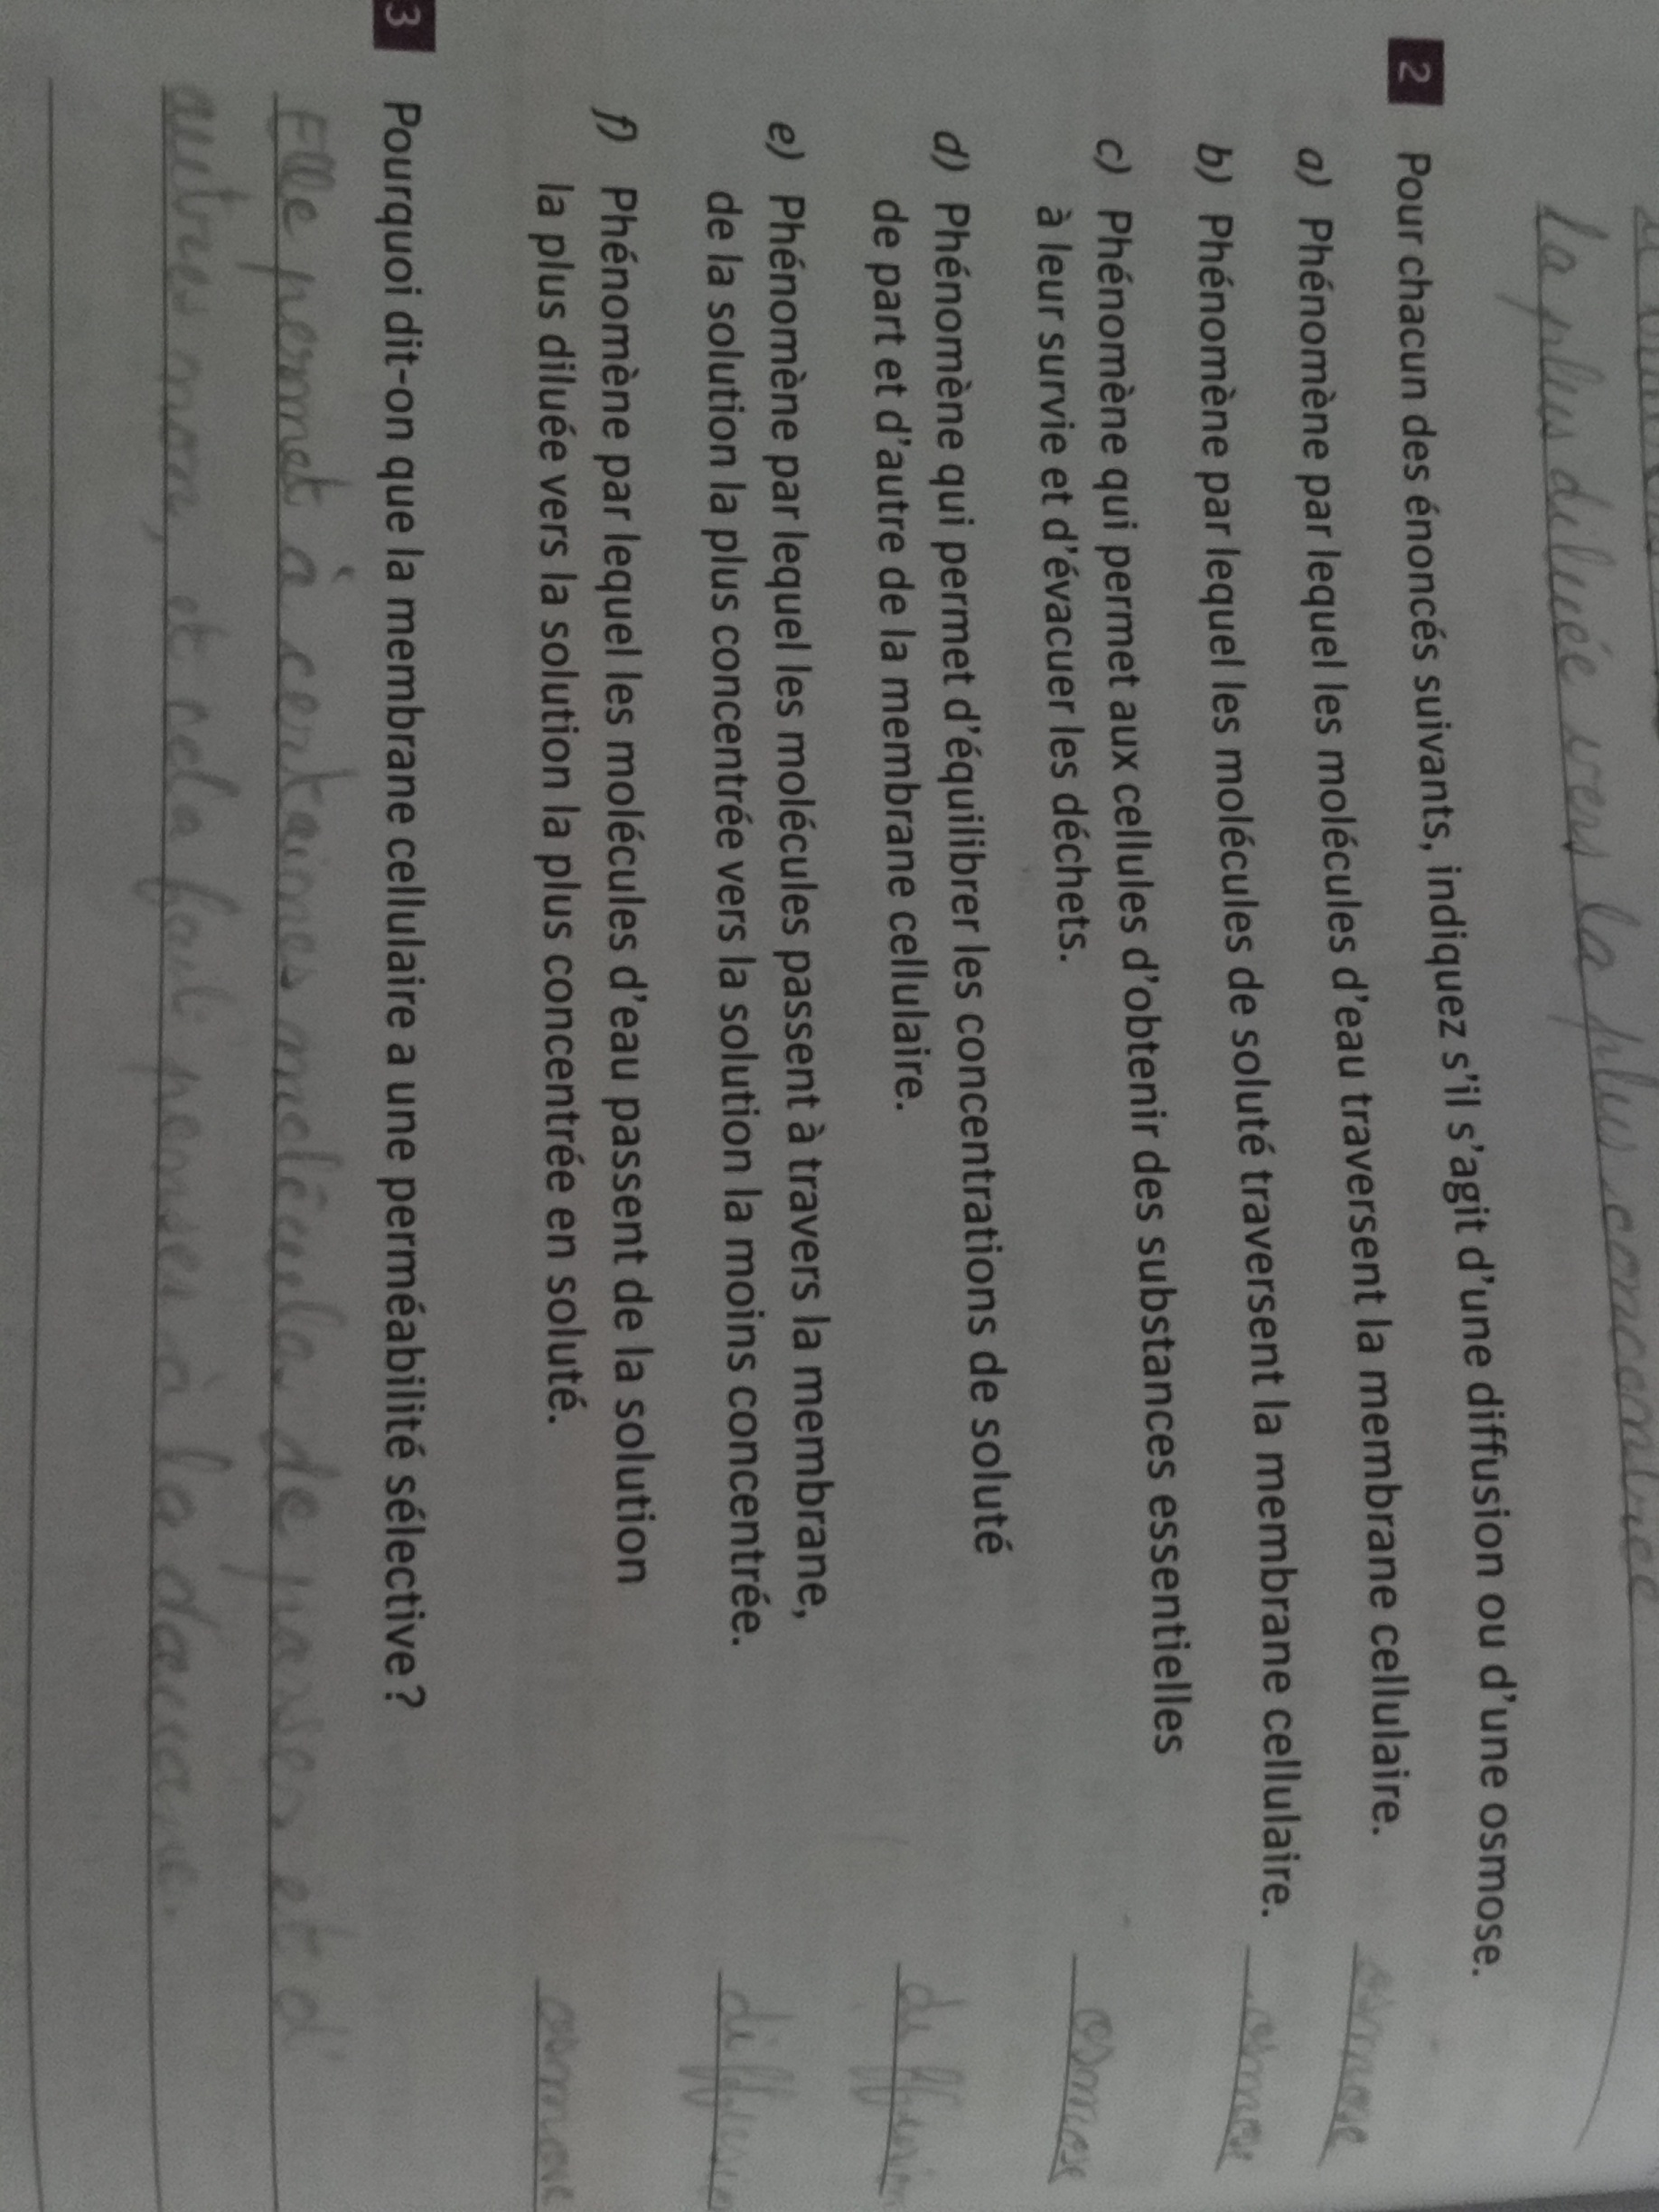 la plus diluée vers la plus concentrée
2 Pour chacun des énoncés suivants, indiquez s'il s'agit d'une diffusion ou d'une osmose.
a) Phénomène par lequel les molécules d'eau traversent la membrane cellulaire. osmose
b) Phénomène par lequel les molécules de soluté traversent la membrane cellulaire. osmose
c) Phénomène qui permet aux cellules d'obtenir des substances essentielles
à leur survie et d'évacuer les déchets. osmose
d) Phénomène qui permet d'équilibrer les concentrations de soluté
de part et d'autre de la membrane cellulaire. diffusion
e) Phénomène par lequel les molécules passent à travers la membrane,
de la solution la plus concentrée vers la solution la moins concentrée. diffusion
f) Phénomène par lequel les molécules d'eau passent de la solution
la plus diluée vers la solution la plus concentrée en soluté. osmose
3 Pourquoi dit-on que la membrane cellulaire a une perméabilité sélective ?
Elle permet à certaines molécules de passer et d'
autres non, et cela fait penser à la douane.